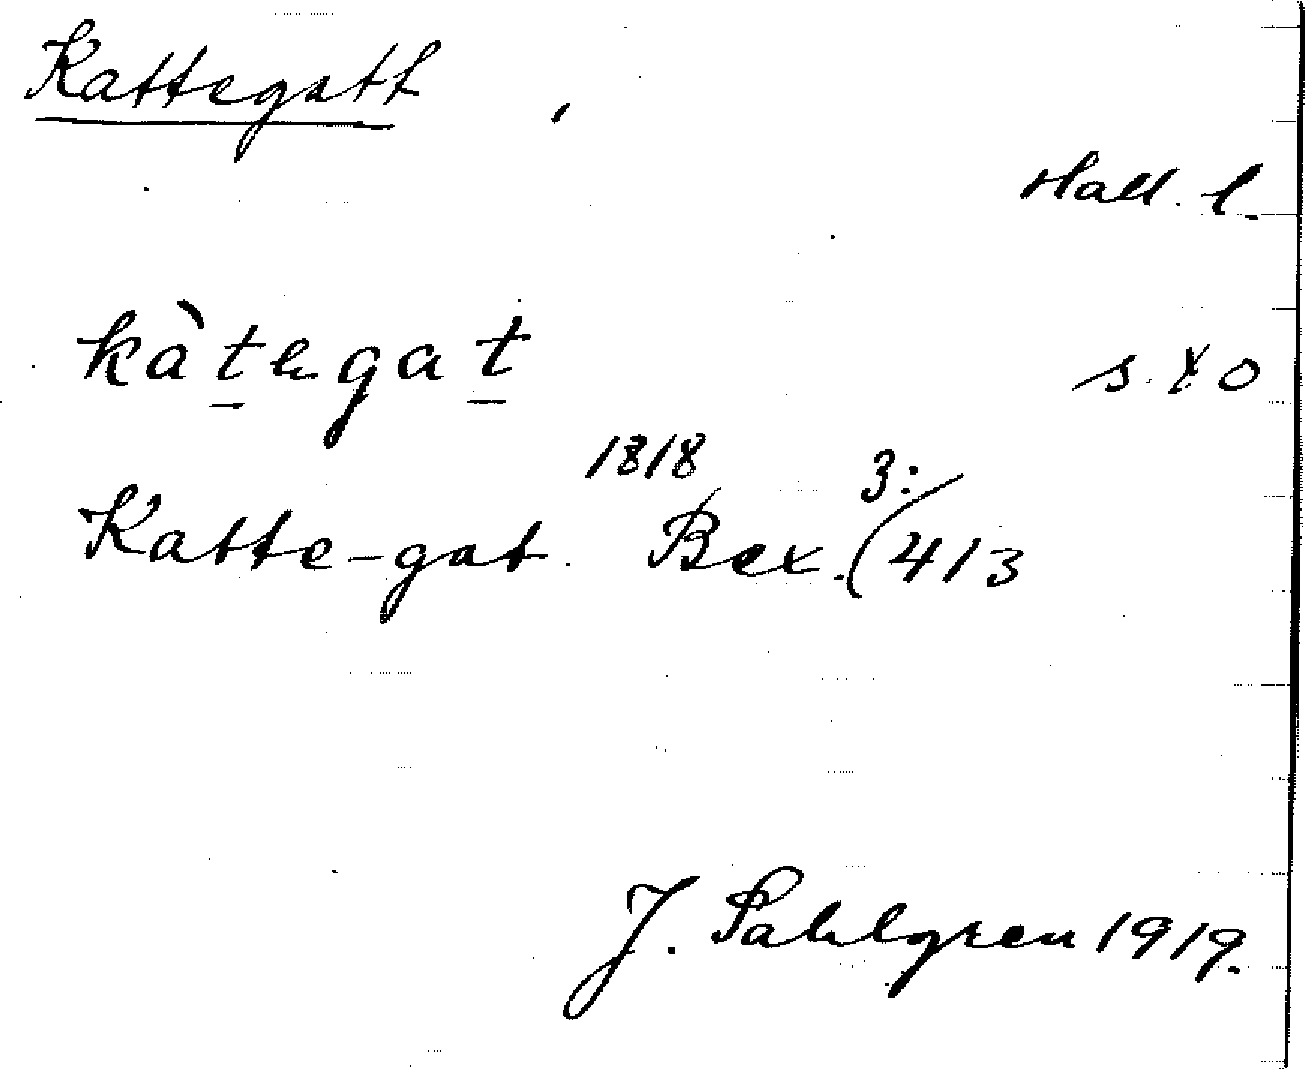 Kattegatt
Hall. l.
kàtegat
s. X o
Katte-gat. 1818 Bex. (3:413
J. Sahlgren 1919.